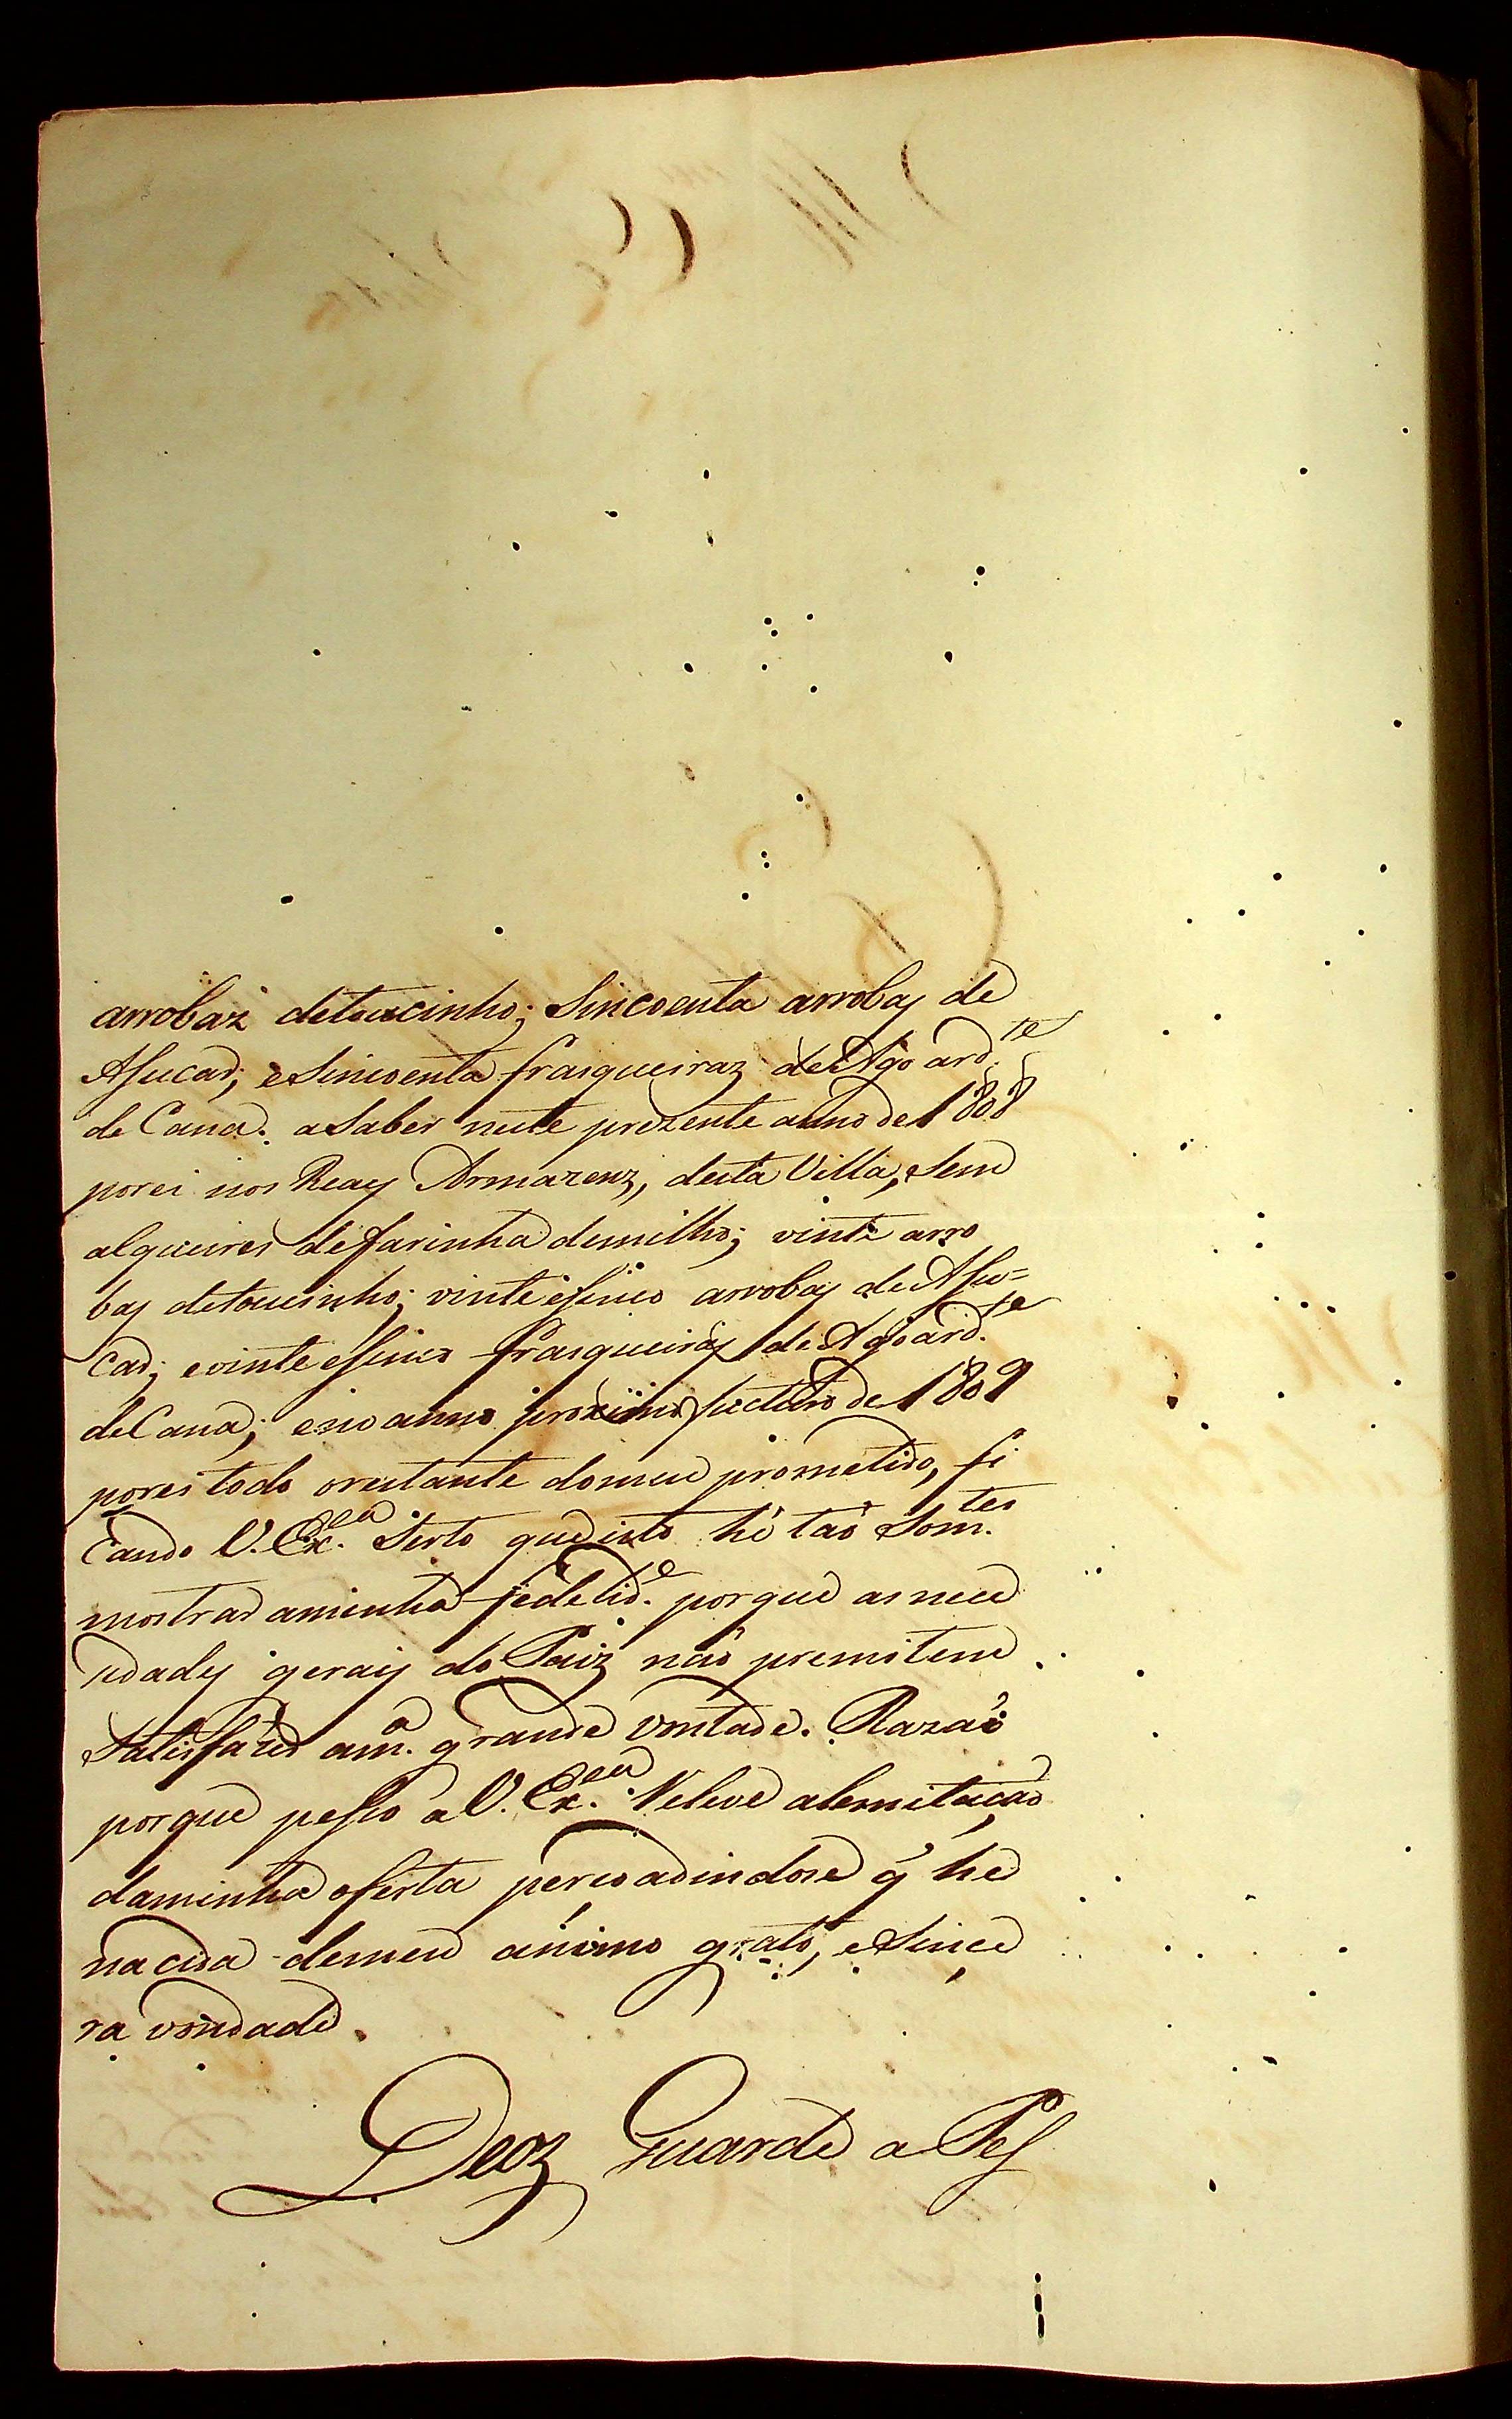 arrobaz detoucinho; Sincoenta arrobas de
Asucar; eSincoenta frasqueiraz deAgoard.te
de Cana. aSaber neste prezente anno de 1808
porei nos Reaes Armazenz, desta Villa, Sem
alqueires defarinha demilho; vinte arro
bas detoucinho; vinte eSinco arrobas de Asu=
car; evinte eSinco frasqueiras de Agoard.te
deCana; eno anno proximo futuro de 1809
porei todo orestante domeu prometido, fi
cando V. Ex.cia Serto que isto hé taõ Som.tes
mostrar aminha fedelid.e porque as nece
cidades geraes do Paiz naõ premitem
Satisfazer am.a grande vontade. Razaõ
porque pesso a V. Ex.cia Releve alemitaçaõ
daminha oferta percoadindose q̃ he
nacida demeu animo grato, eSince
ra vondade.
Deoz Guarde a Pes